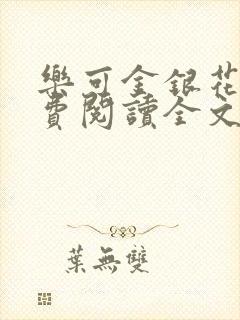 樂可金銀花
費閱讀全文
葉無雙